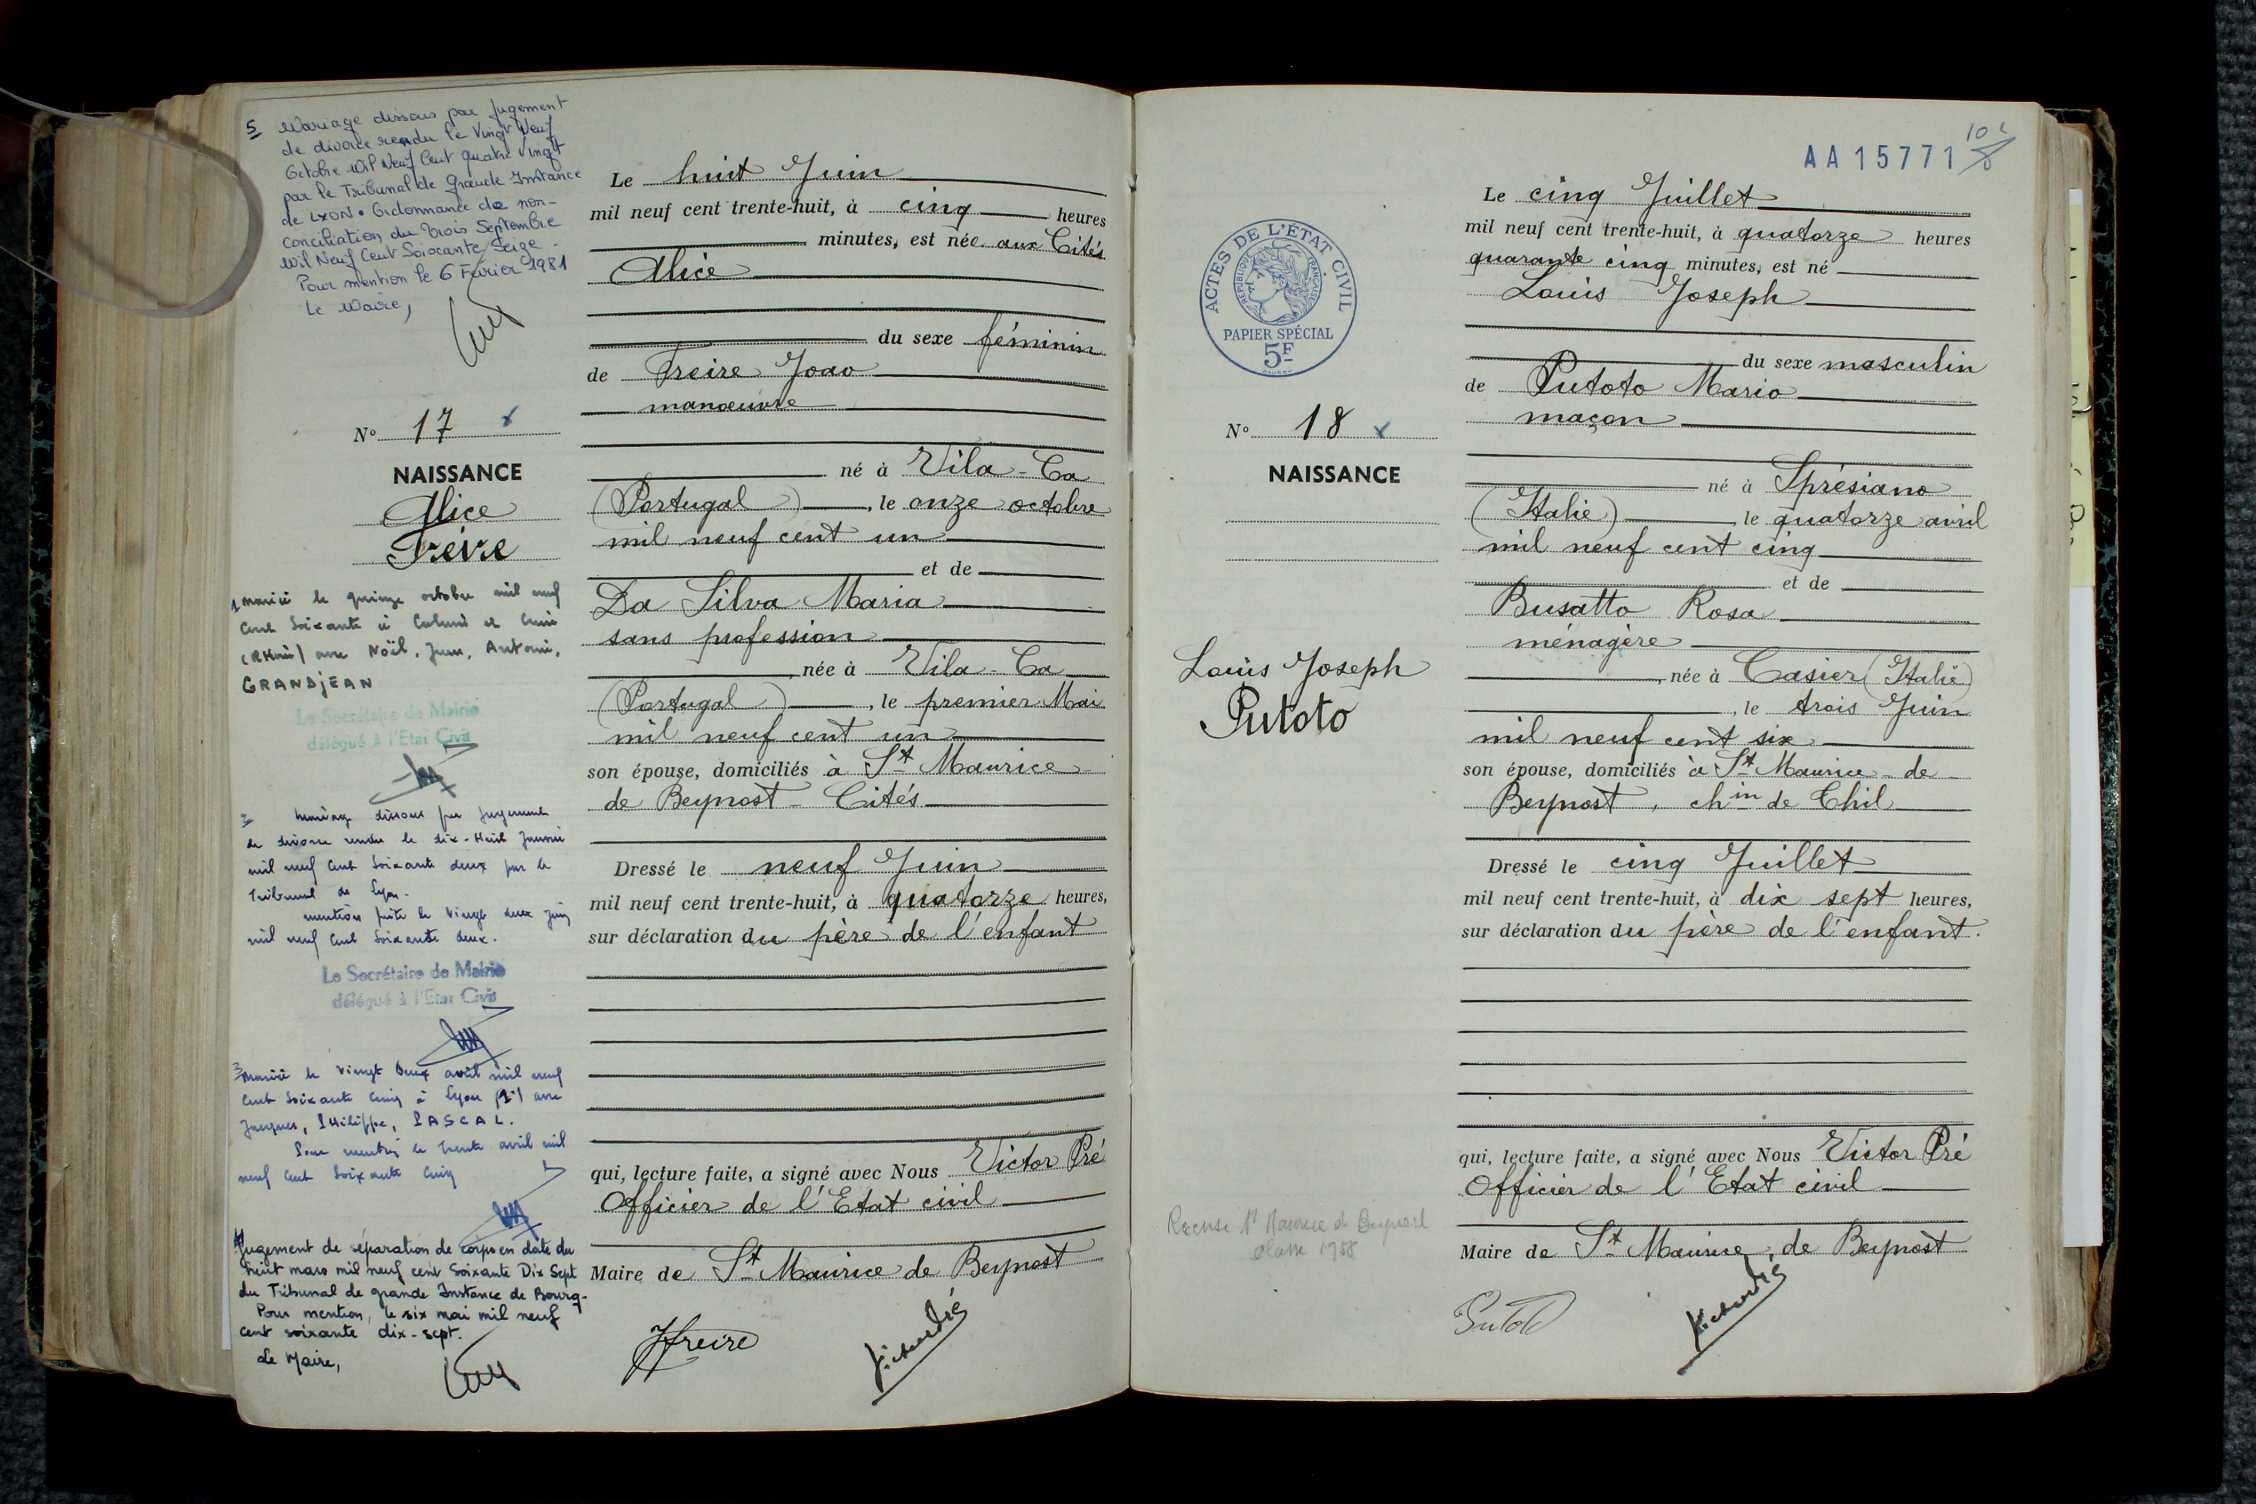 5 Mariage dissous par Jugement
de divorce rendu le Vingt Neuf
Octobre Mil Neuf Cent Quatre Vingt
par le Tribunal de Grande Instance
de LYON. Ordonnance de non-
conciliation du Trois Septembre
Mil Neuf Cent Soixante Seize.
Pour mention le 6 Février 1981
Le Maire,
N° 17 x
NAISSANCE
Alice
Freire
1 mariée le quinze octobre mil neuf
cent soixante à Caluire et Cuire
(Rhône) avec Noël, Jean, Antoine,
GRANDJEAN
Le Secrétaire de Mairie
délégué à l'Etat Civil
2 mariage dissous par Jugement
de divorce rendu le dix-Huit Janvier
mil neuf cent soixante deux par le
Tribunal de Lyon.
mention faite le vingt deux juin
mil neuf cent soixante deux.
Le Secrétaire de Mairie
délégué à l'Etat Civil
3 mariée le vingt deux avril mil neuf
cent soixante cinq à Lyon avec
Jacques, Philippe, PASCAL.
Pour mention le trente avril mil
neuf cent soixante cinq
4 Jugement de séparation de corps en date du
huit mars mil neuf cent Soixante Dix Sept
du Tribunal de grande Instance de Bourg.
Pour mention, le six mai mil neuf
cent soixante dix-sept.
Le Maire,
Le huit Juin
mil neuf cent trente-huit, à cinq heures
minutes, est née aux Cités
Alice
du sexe féminin
de Freire Joao
manœuvre
né à Vila-Ca
(Portugal), le onze octobre
mil neuf cent un
et de
Da Silva Maria
sans profession
, née à Vila-Ca
(Portugal), le premier Mai
mil neuf cent un
son épouse, domiciliés à St Maurice
de Beynost - Cités
Dressé le neuf Juin
mil neuf cent trente-huit, à quatorze heures,
sur déclaration du père de l'enfant
qui, lecture faite, a signé avec Nous Victor Pré
Officier de l'Etat civil
Maire de St Maurice de Beynost
Jfreire
Victor Pré
AA15771
ACTES DE L'ÉTAT CIVIL
RÉPUBLIQUE FRANÇAISE
PAPIER SPÉCIAL
5F
N° 18 x
NAISSANCE
Louis Joseph
Putoto
Recensé St Maurice de Beynost
classe 1958
Le cinq Juillet
mil neuf cent trente-huit, à quatorze heures
quarante cinq minutes, est né
Louis Joseph
du sexe masculin
de Putoto Mario
maçon
né à Sprésiano
(Italie), le quatorze avril
mil neuf cent cinq
et de
Busatto Rosa
ménagère
, née à Casier (Italie)
, le trois Juin
mil neuf cent six
son épouse, domiciliés à St Maurice de
Beynost, chin de Chil
Dressé le cinq Juillet
mil neuf cent trente-huit, à dix sept heures,
sur déclaration du père de l'enfant.
qui, lecture faite, a signé avec Nous Victor Pré
Officier de l'Etat civil
Maire de St Maurice de Beynost
Putoto
Victor Pré